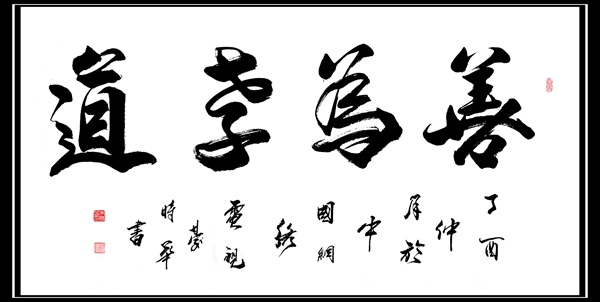 善為孝道
丁酉仲於中國網絡電視臺時華書